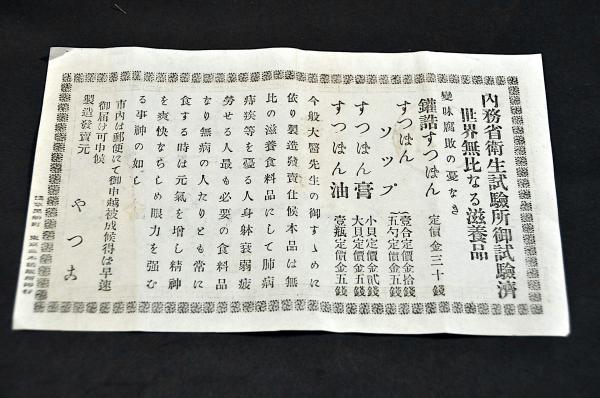 内務省衛生試驗所御試驗濟
世界無比なる滋養品
變味腐敗の憂なき
鑵詰すつぽん 定價金三十錢
すつぽんソツプ 壹合定價金拾錢
一五勺定價金五錢
すつぽん膏 小貝定價金貳錢
大貝定價金五錢
すつぽん油 壹瓶定價金五錢
今般大醫先生の御すゝめに
依り製造發賣仕候本品は無
比の滋養食料品にして肺病
痔疾等を憂る人身躰衰弱疲
勞せる人最も必要の食料品
なり無病の人たりとも常に
食する時は元氣を增し精神
を爽快ならしめ眼力を強む
る事神の如し
市内は郵便にて御申越被成候得は早速
御届け可申候
製造發賣元 やつこ